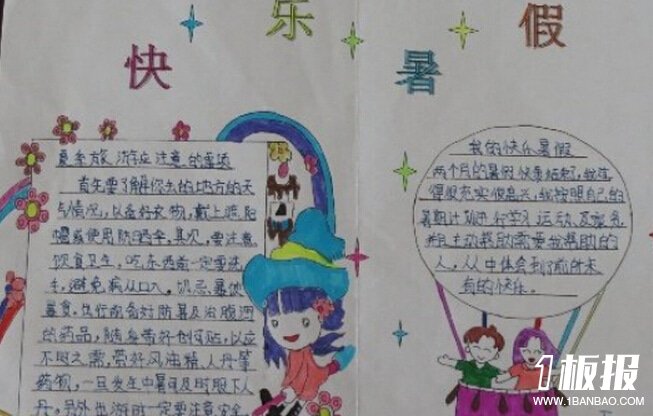 快乐暑假
夏季旅游应注意的事项
首先要了解你去的地方的天
气情况,以备好衣物,戴上遮阳
帽或使用防晒伞,其次,要注意
饮食卫生,吃东西前一定要洗
手,避免病从口入。切忌暴饮
暴食,出行前备好防暑及治腹泻
的药品,随身带好创可贴,以应
不时之需,带好风油精,人丹等
药物,一旦发生中暑可及时服下人
丹,另外出游时一定要注意安全
我的快乐暑假
两个月的暑假快要结束了,我过
得很充实很高兴,我按照自己的
暑期计划进行学习运动
并主动帮助需要我帮助的
人,从中体会到了前所未
有的快乐。
1板报
WWW.1BANBAO.COM